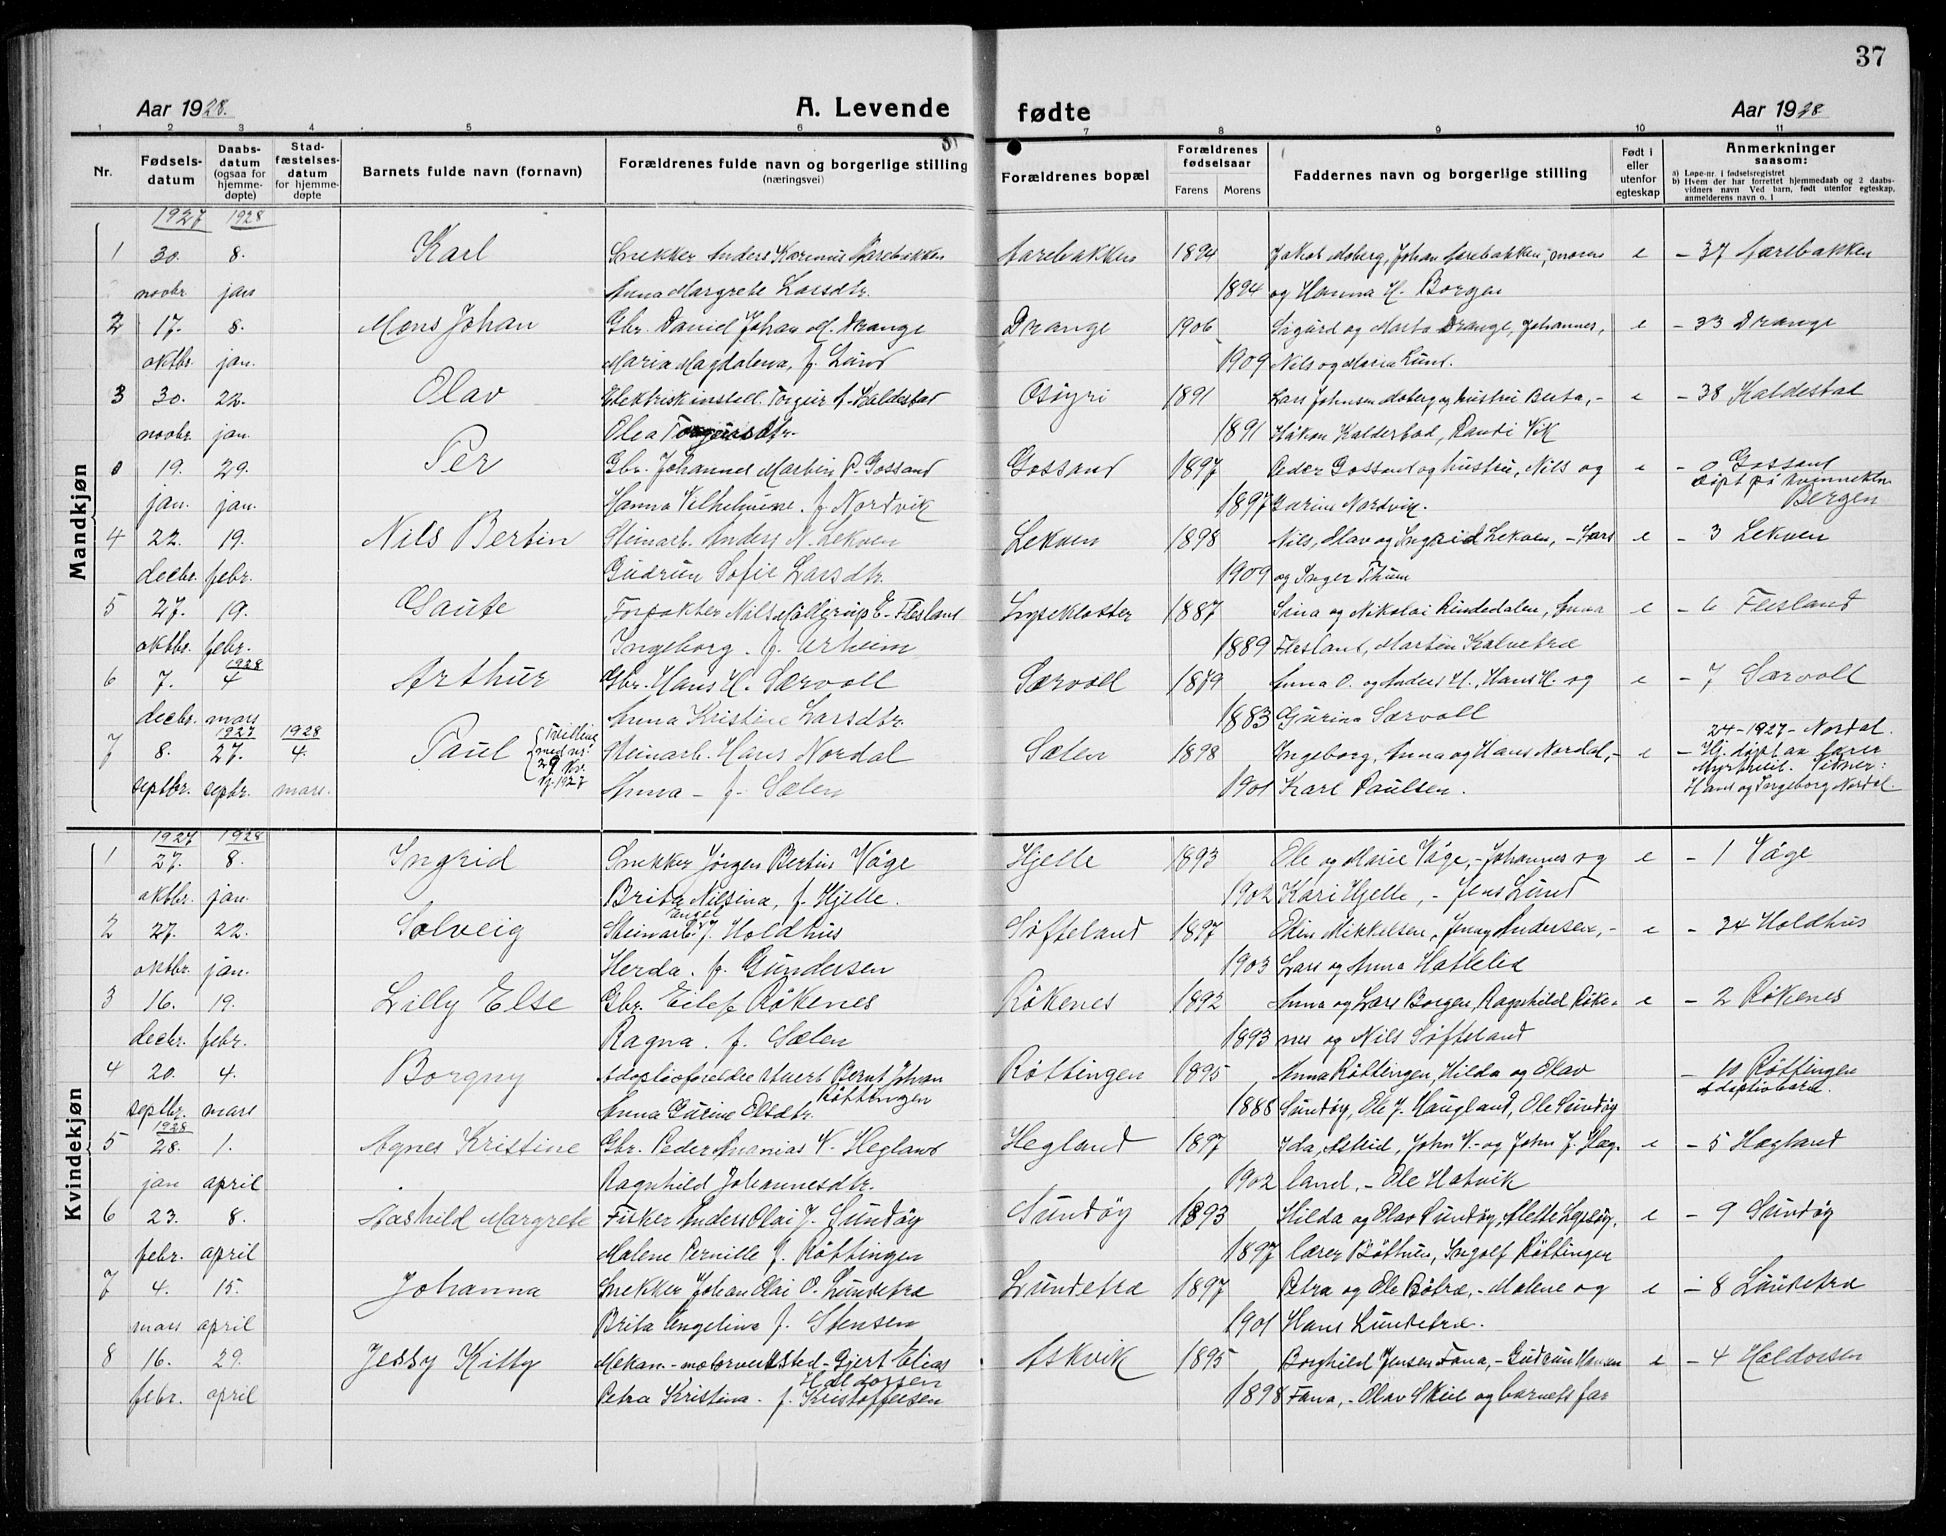 37
Aar 1928.
A. Levende
fødte
Aar 1928.
1 2 3 4 5 6 7 8 9 10 11
Nr.
Fødsels-
datum
Daabs-
datum
(ogsaa for
hjemme-
døpte)
Stad-
fæstelses-
datum
for hjemme-
døpte
Barnets fulde navn (fornavn)
Forældrenes fulde navn og borgerlige stilling
(næringsvei)
Forældrenes bopæl
Forældrenes
fødselsaar
Farens Morens
Faddernes navn og borgerlige stilling
Født i
eller
utenfor
egteskap
Anmerkninger
saasom:
a) Løpe-nr. i fødselsregistret
b) Hvem der har forrettet hjemmedaab og 2 daabs-
vidners navn Ved barn, født utenfor egteskap,
anmelderens navn o. l
Mandkjøn
1927 1928
1 30. 8. Karl Snekker Anders Rasmus Aarebakken Aarebakken 1894 Jakob Moberg, Johan Aarebakken, moren e - 37 Aarebakken
novbr. jan Anna Margrete Larsdtr. 1894 og Hanna H. Borgen
2 17. 8. Mons Johan Gbr. Daniel Johan M. Drange Drange 1906 Sigurd og Marta Drange, Johannes, e - 33 Drange
oktbr. jan. Maria Magdalena, f. Lund 1909 Nils og Maria Lund.
3 30. 22. Olav Elektrisk insted. Torgur A. Haldestad Osøyri 1891 Lars Johnsen Moberg og hustru Berta, - e - 38 Kaldestal
novbr. jan. Olea Torgersdtr. 1891 Håkon Kalderbad, Randi Vik
0 19. 29. Per Gbr. Johannes Martin P. Gossand Gossand 1897 Peder Gossand og hustru, Nils og e - 0 Gossand
døpt på kvinnekln.
Bergen
jan. jan. Hanna Vilhelmine. f. Nordvik 1897 Karine Nordvik.
4 22. 19. Nils Bertin Steinarb. Anders N. Lekven Lekven 1898 Nils, Olav og Ingrid Lekven, - Lars e - 3 Lekven
decbr. febr. Gudrun Sofie Larsdtr. 1909 og Inger Thum
5 27. 19. Gaute Forpakter Nils Møllerup E. Flesland Lysekloster 1887 Lina og Nikolai Rindedalen, Anna e - 6 Flesland
oktbr. febr. Ingeborg. f. Urheim 1889 Flesland, Martin Kalvetræ
1928
6 7. 4 Arthur Gbr. Hans H. Særvoll Særvoll 1879 Anna O. og Anders H., Hans H. og e - 7 Særvoll
decbr. mars Anna Kristine Larsdtr. 1883 Gurina Særvoll
1927 1928
7 8. 27. 4. Paul (Tvilling med nr. 29 kv. kj. 1927 Steinarb. Hans Nordal Sælen 1898 Ingeborg, Anna og Hans Nordal, - e 24-1927- Nordal.
- Hj. døpt av lærer
Myrtveit. Vitner:
Hans og Ingeborg Nordal.
septbr. septbr. mars. Anna - f. Sælen 1901 Karl Paulsen.
Kvindekjøn
1927 1928
1 27. 8. Ingrid Snekker Jørgen Bertin Våge Hjelle 1893 Ole og Marie Våge, - Johannes og e - 1 Våge
oktbr. jan. Brita Nilsina, f. Hjelle. 1902 Kari Hjelle, - Jens Lund
2 27. 22. Solveig Steinarb. Engel J. Holdhus Søfteland 1897 Edin Mikkelsen, Jenny Andersen, - e - 34 Holdhus
oktbr. jan. Herda. f. Gundersen 1903 Lars og Anna Hattelid
3 16. 19. Lilly Else Gbr. Eilef Røkenes Røkenes 1892 Anna og Lars Borgen, Ragnhild Røke- e - 2 Røkenes
decbr. febr. Ragna. f. Sælen 1893 nes og Nils Søfteland
4 20. 4. Borgny Adoptivforeldre stuert Bernt Johan Røttingen Røttingen 1895 Anna Røttingen, Hilda og Olav - 10 Røttingen
Adoptivbarn.
septbr. mars Anna Gurine Olsdtr. 1888 Sundøy, Ole J. Haugland, Ole Sundøy
1928
5 28. 1. Agnes Kristine Gbr. Peder Ananias V. Hegland Hegland 1897 Ida, Astrid, John V. og John J. Hæg- e - 5 Hægland
jan april Ragnhild Johannesdtr. 1902 land, - Ole Hatvik
6 23. 8. Aashild Margrete Fisker Anders Olai J. Sundøy Sundøy 1893 Hilda og Olav Sundøy, Mette Lepsøy, e - 9 Sundøy
febr. april Malene Pernille f. Røttingen 1897 lærer Bøthun, Ingolf Røttingen
7 4. 15. Johanna Snekker Johan Olai O. Lundetræ Lundetræ 1897 Petra og Ole Bøtræ, - Malene og e - 8 Lundetræ
mars april Brita Engelina f. Stensen 1901 Hans Lundetræ.
8 16. 29. Jessy Kitty Mekan. - motorverksted - Gjert Elias Haldorsen Askvik 1895 Borghild Jensen Fana, - Gudrun Hansen e - 4 Haldorsen
febr. april Petra Kristina. f. Kristoffersen 1898 Fana, - Olav Skeie og barnets far